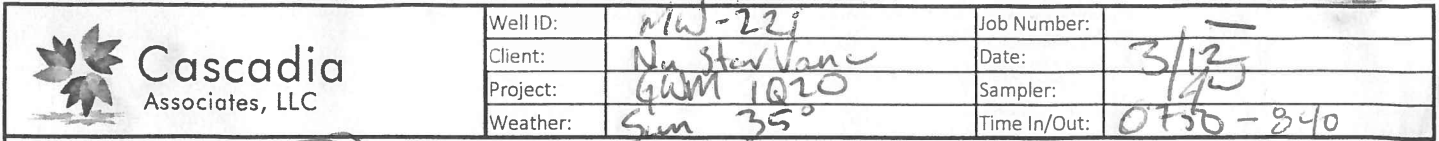 Cascadia
Associates, LLC
Well ID: MW-22i Job Number: —
Client: NuStar Vanc Date: 3/12
Project: GWM 1Q20 Sampler:
Weather: Sun 35° Time In/Out: 0750 - 840